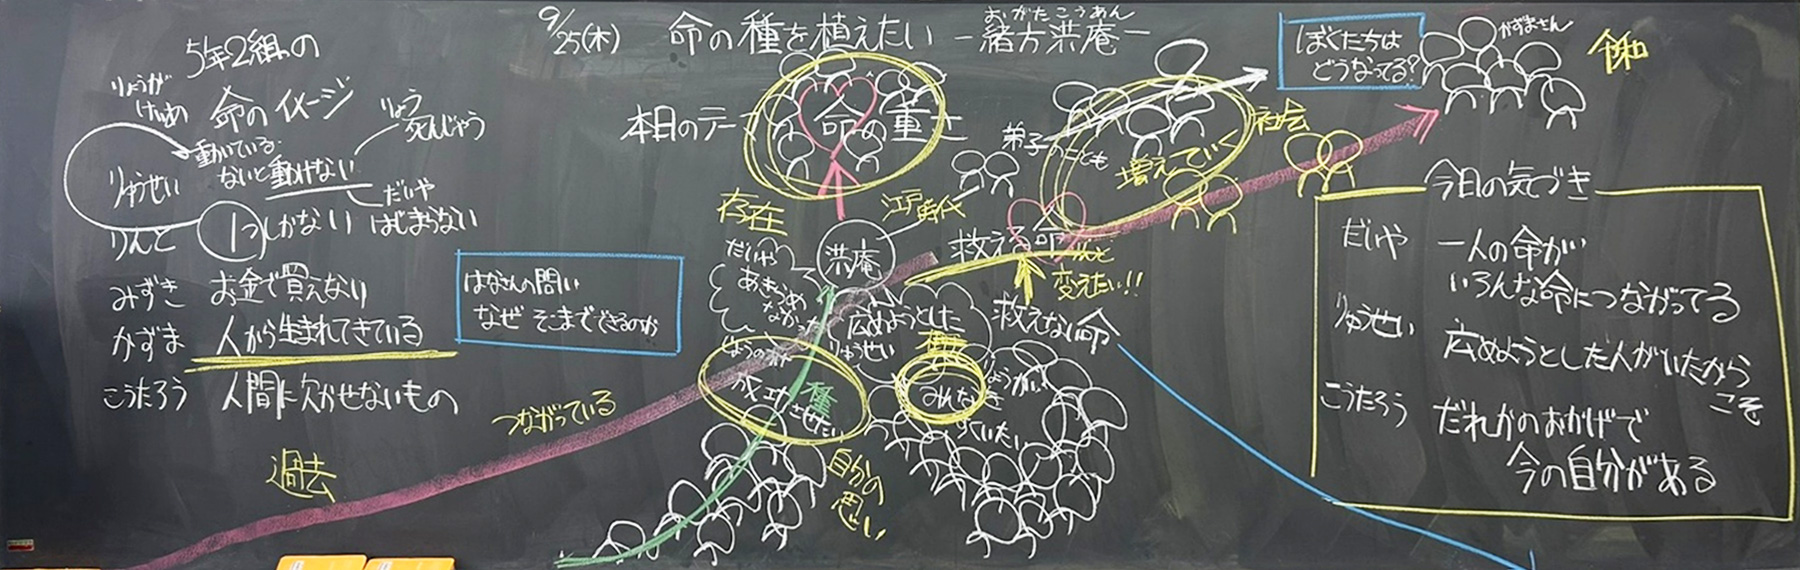 9/25(木) 命の種を植えたい -緒方洪庵-
おがたこうあん
5年2組の
命のイメージ
りょうが
けいめ
動いている
ないと動けない
りょう
死んじゃう
りゅうせい
だいや
はじまらない
りんと 1つしかない
みずき お金で買えない
かずま 人から生まれてきている
こうたろう 人間に欠かせないもの
はなさんの問い
なぜ そこまでできるのか
過去
つながっている
本日のテー
命の重
存在
江戸時代
洪庵
だいや
あきらめ
なかった
広めようとした
りゅうせい
成功させたい
種
みんな
すくいたい
自分の
思い
救える命
変えたい!!
救えない命
弟子のことも
増えていく
社会
ぼくたちは
どうなってる?
かずまさん
令和
今日の気づき
だいや 一人の命が
いろんな命につながってる
りゅうせい 広めようとした人がいたから
こそ
こうたろう だれかのおかげで
今の自分がある